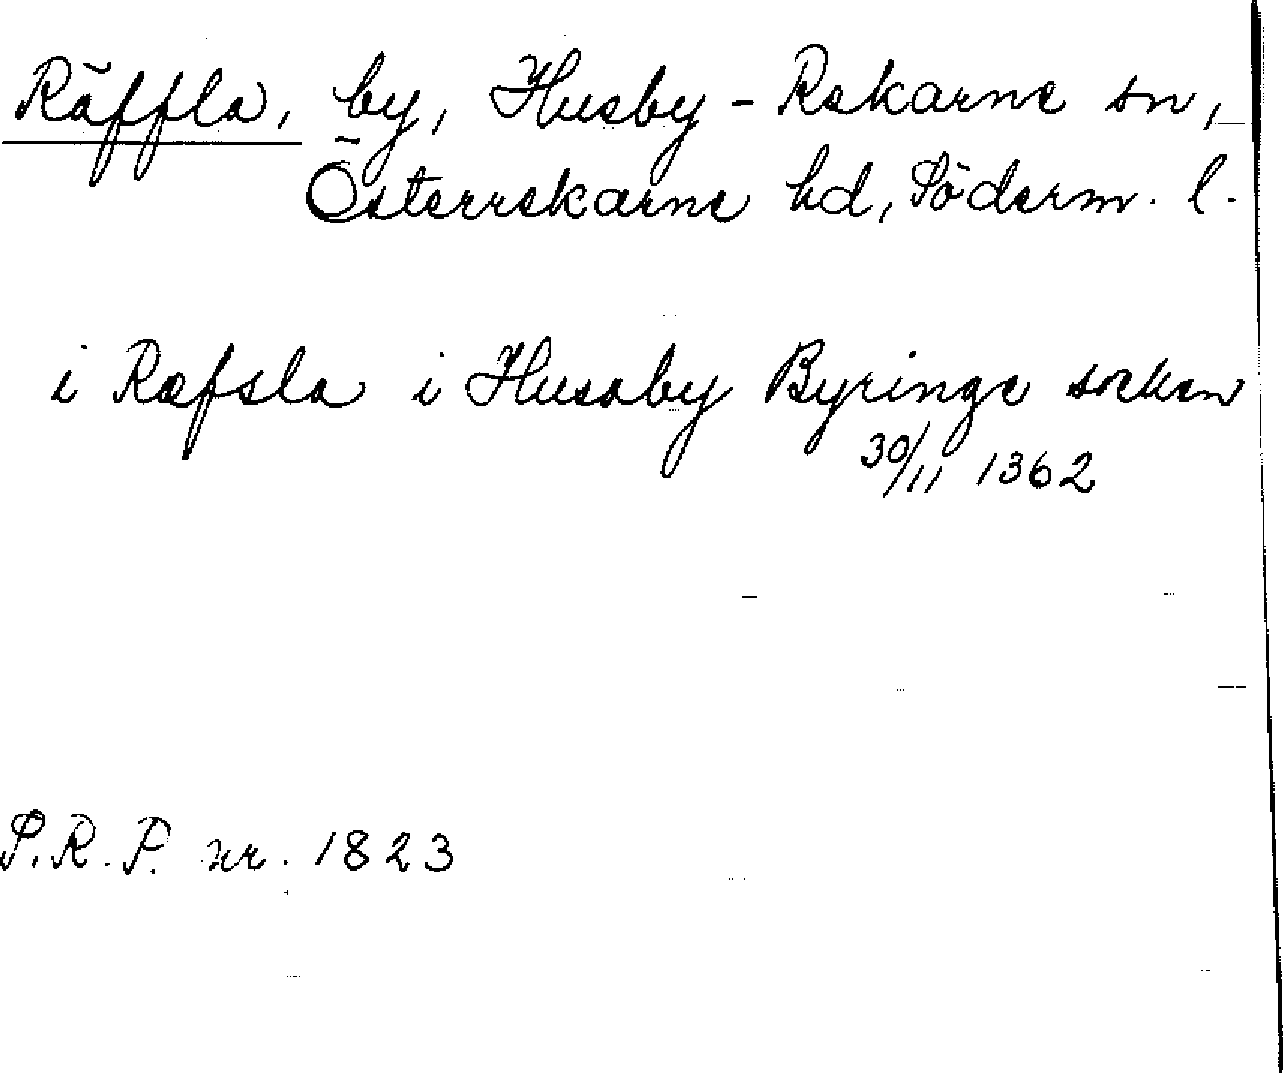 Räffla, by, Husby-Rekarne sn,
Österrekarne hd, Söderm. l.
i Ræfsla i Husaby Byringe socken
30/11 1362
S.R.P. nr. 1823